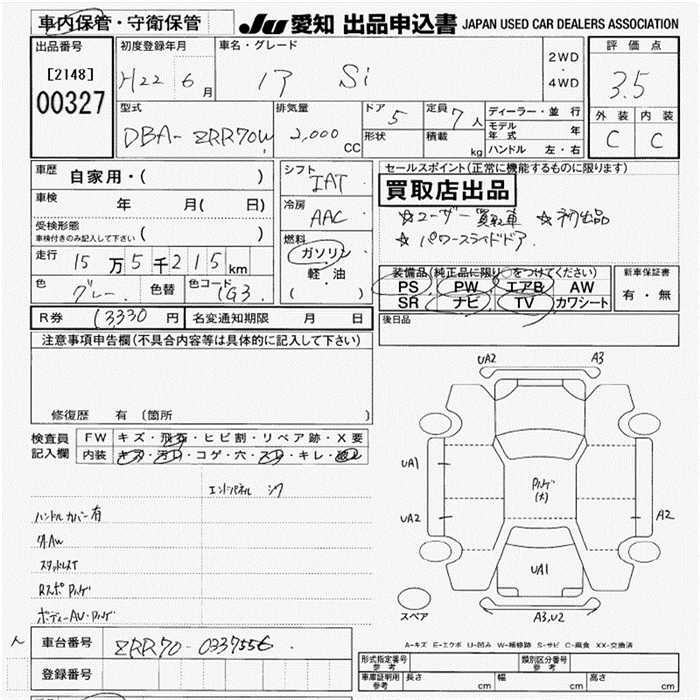 車内保管・守衛保管
JU 愛知 出品申込書 JAPAN USED CAR DEALERS ASSOCIATION
出品番号
[2148]
00327
初度登録年月
H22 6 月
車名・グレード
Si
2WD
・
4WD
評価点
3.5
外装 内装
C C
型式
DBA-ZRR70W
排気量
2,000 CC
ドア 5
形状
定員 7 人
積載 kg
ディーラー・並行
モデル年式 年
ハンドル 左・右
車歴 自家用・( )
車検 年 月( 日)
受検形態
車検付きのみ記入して下さい ( )
走行 15万5千215km
色 グレー 色替 色コード 1G3
シフト
IAT
冷房
AAC
燃料
ガソリン
軽・油
( )
セールスポイント(正常に機能するものに限ります)
買取店出品
☆ユーザー買取車 ☆初出品
☆パワースライドドア
装備品(純正品に限り○をつけてください)
PS PW エアB AW
SR ナビ TV カワシート
新車保証書
有・無
後日品
R券 13330 円 名変通知期限 月 日
注意事項申告欄(不具合内容等は具体的に記入して下さい)
修復歴 有 (箇所 )
検査員記入欄
FW キズ・飛石・ヒビ割・リペア跡・X要
内装 キズ・汚れ・コゲ・穴・スレ・キレ・
ハンドルカバー有
スタッドレスT
UA2 A3
UA1
UA2
A2
UA1
A3,U2
スペア
A-キズ E-エクボ U-凹み W-補修跡 S-サビ C-腐食 XX-交換済
車台番号 ZRR70-0337556
登録番号
形式指定番号参考 類別区分番号参考
車庫証明用参考 長さ cm 幅 cm 高さ cm